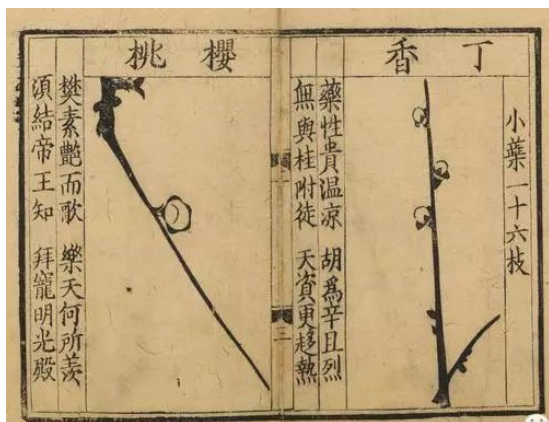 小蘂一十六枝
丁香
藥性貴温涼 胡爲辛且烈
無與桂附徒 天資更趍熱
三
櫻桃
樊素艷而歌 樂天何所羨
湏結帝王知 拜寵明光殿